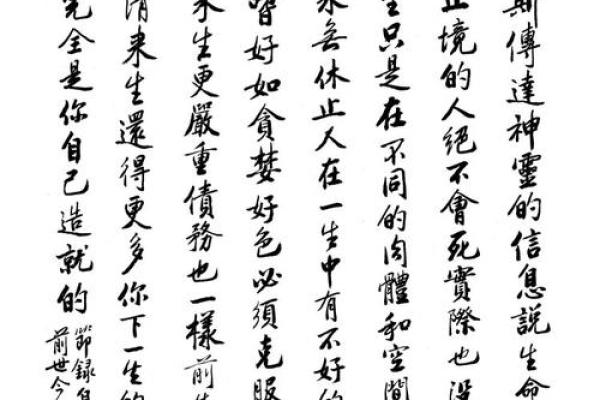 斯傳達神靈的信息說生命
止境的人絕不會死實際也沒
只是在不同的肉體和空間
永無休止人在一生中有不好的
嗜好如貪婪好色必須克服
來生更嚴重債務也一樣前生
清來生還得更多你下一生的
完全是你自己造就的
節錄自
前世今